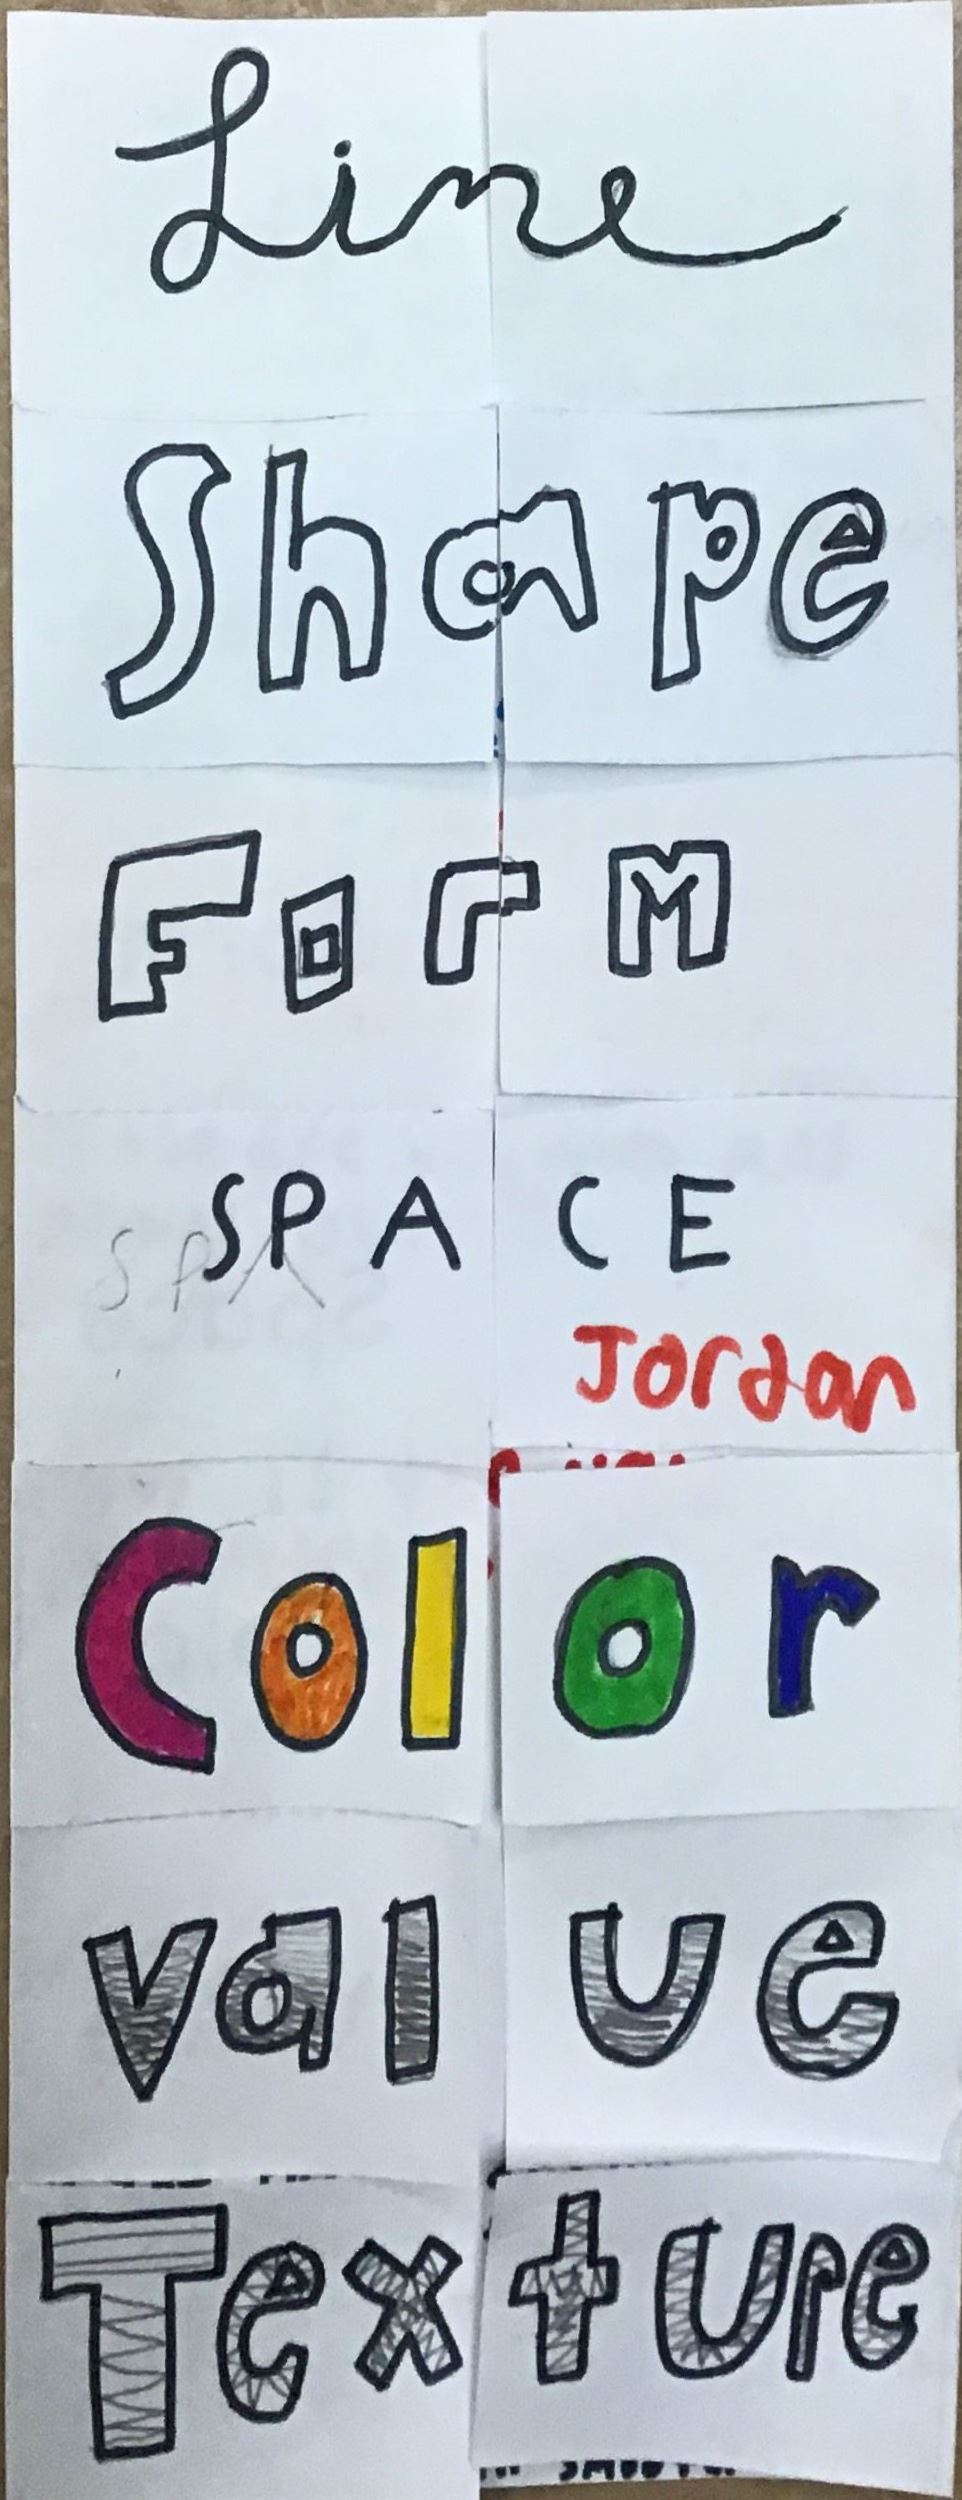 Line
Shape
FOrM
SPACE
SPA
Jordan
Color
value
Texture